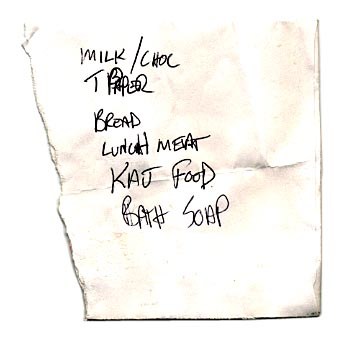 MILK/CHOC
T PAPER
BREAD
LUNCH MEAT
KAT FOOD
BATH SOAP